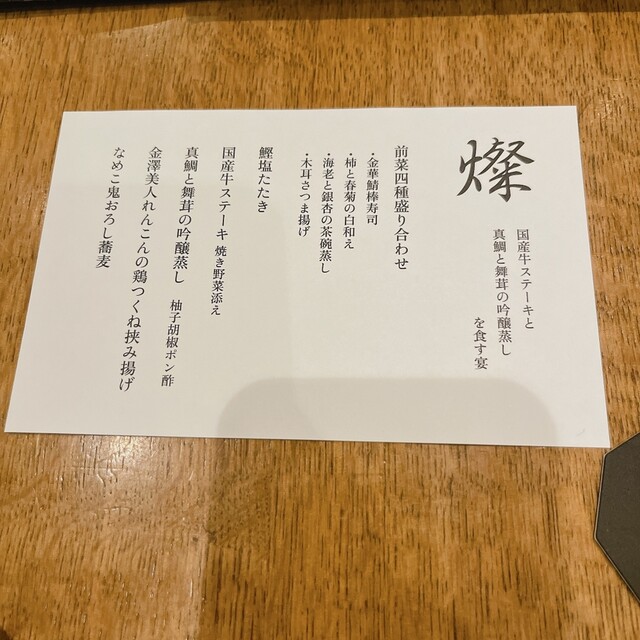 燦
国産牛ステーキと
真鯛と舞茸の吟醸蒸し
を食す宴
前菜四種盛り合わせ
・金華鯖棒寿司
・柿と春菊の白和え
・海老と銀杏の茶碗蒸し
・木耳さつま揚げ
鰹塩たたき
国産牛ステーキ 焼き野菜添え
真鯛と舞茸の吟醸蒸し 柚子胡椒ポン酢
金澤美人れんこんの鶏つくね挟み揚げ
なめこ鬼おろし蕎麦